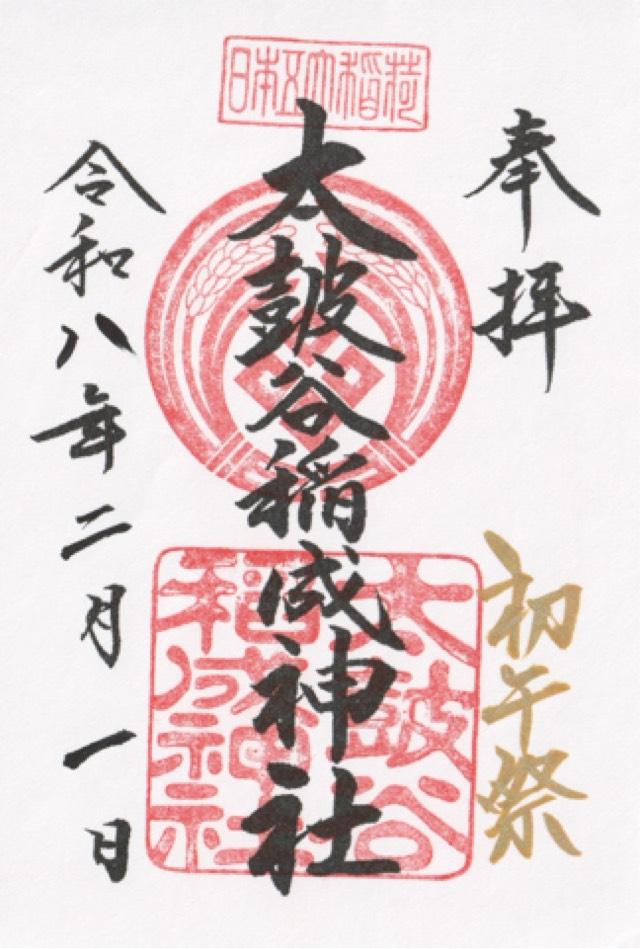 奉拝
初午祭
日本五大稲荷
太皷谷稲成神社
太皷谷稲成神社
令和八年二月一日